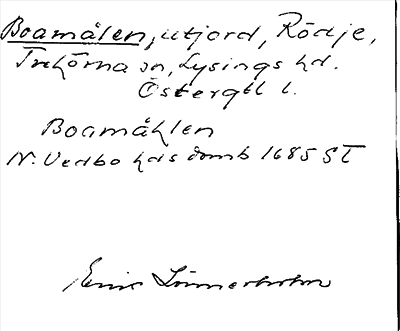 Boamålen, utjord, Rödje,
Trehörna sn, Lysings hd.
Östergtl l.
Boamåhlen
N. Vedbo hds domb 1685 ST
Linnerholm